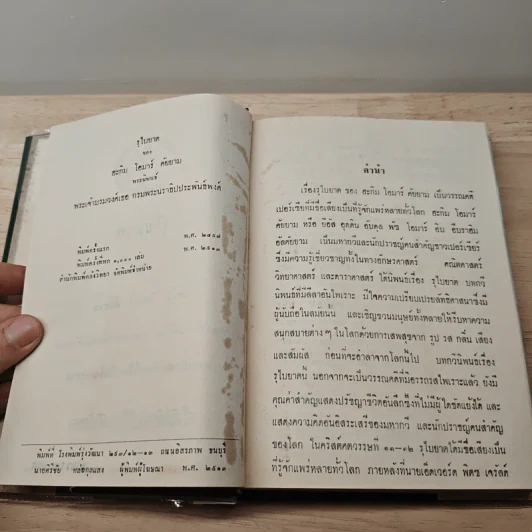 รุไบยาต
ของ
ฮะกิม โอมาร์ คัยยาม
พระนิพนธ์
พระเจ้าบรมวงศ์เธอ กรมพระนราธิปประพันธ์พงศ์
พิมพ์ครั้งแรก พ.ศ. ๒๔๕๗
พิมพ์ครั้งที่หก ๑,๐๐๐ เล่ม พ.ศ. ๒๕๑๓
สำนักพิมพ์คลังวิทยา จัดพิมพ์จำหน่าย
พิมพ์ที่ โรงพิมพ์รุ่งวัฒนา ๒๔๓/๑๒–๑๓ ถนนอิสรภาพ ธนบุรี
นายศิริชัย ผู้พิมพ์ผู้โฆษณา พ.ศ. ๒๕๑๓
คำนำ
เรื่องรุไบยาต ของ ฮะกิม โอมาร์ คัยยาม เป็นวรรณคดี
เปอร์เซียที่มีชื่อเสียงเป็นที่รู้จักแพร่หลายทั่วโลก ฮะกิม โอมาร์
คัยยาม หรือ ยิยัส อุดดิน อับดุล พัธ โอมาร์ อิบ อิบราฮิม
อัลคัยยาม เป็นมหากวีและนักปราชญ์คนสำคัญชาวเปอร์เซียร์
ซึ่งมีความรู้เชี่ยวชาญทั้งในทางอักษรศาสตร์ คณิตศาสตร์
วิทยาศาสตร์ และดาราศาสตร์ ได้นิพนธ์เรื่อง รุไบยาต บทกวี
นิพนธ์ที่มีลีลาอันไพเราะ มีใจความเปรียบเปรยลัทธิศาสนาซึ่งมี
ผู้นับถือในสมัยนั้น และเชิญชวนมนุษย์ทั้งหลายให้รีบหาความ
สนุกสบายต่าง ๆ ในโลกด้วยการเสพสุขจาก รูป รส กลิ่น เสียง
และสัมผัส ก่อนที่จะอำลาจากโลกนี้ไป บทกวีนิพนธ์เรื่อง
รุไบยาตนี้ นอกจากจะเป็นวรรณคดีที่มีอรรถรสไพเราะแล้ว ยังมี
คุณค่าสำคัญแสดงปรัชญาชีวิตอันลึกซึ้งที่ไม่มีผู้ใดขัดแย้งได้ และ
แสดงความคิดอันอิสระเสรีของมหากวี และนักปราชญ์คนสำคัญ
ของโลก ในคริสต์ศตวรรษที่ ๑๑–๑๒ รุไบยาตได้มีชื่อเสียงเป็น
ที่รู้จักแพร่หลายทั่วโลก ภายหลังที่นายเอ็ดเวอร์ด ฟิตซ เจรัลด์